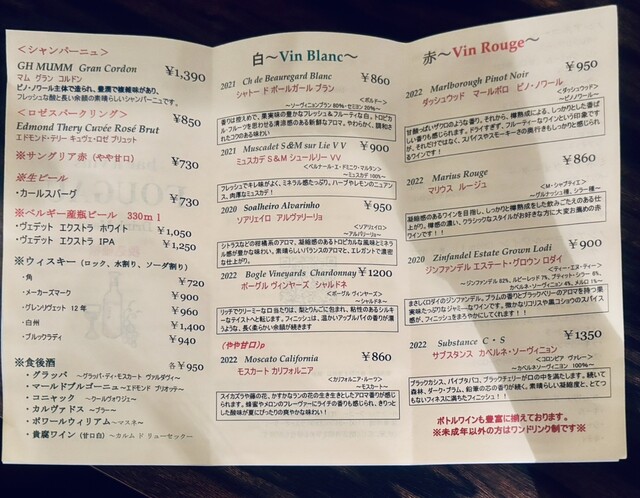 <シャンパーニュ>
GH MUMM Gran Cordon ¥1,390
マム グラン コルドン
ピノ・ノワール主体で造られ、豊潤で複雑味があり、
フレッシュな酸と長い余韻の素晴らしいシャンパーニュです。
<ロゼスパークリング> ¥850
Edmond Thery Cuvée Rosé Brut
エドモンド・テリー キュヴェ・ロゼ ブリュット
※サングリア赤(やや甘口) ¥730
※生ビール
・カールスバーグ ¥730
※ベルギー産瓶ビール 330ml
・ヴェデット エクストラ ホワイト ¥1,050
・ヴェデット エクストラ IPA ¥1,250
※ウィスキー(ロック、水割り、ソーダ割り)
・角 ¥720
・メーカーズマーク ¥900
・グレンリヴェット 12年 ¥960
・白州 ¥1,400
・ブルックラディ ¥940
※食後酒 各¥950
・グラッパ ~グラッパ・ディ・モスカート ヴァルダヴィ~
・マールドブルゴーニュ ~エドモンド ブリオッテ~
・コニャック ~クールヴォワジェ~
・カルヴァドス ~ブラー~
・ポワールウィリアム ~マスネ~
・貴腐ワイン(甘口白) ~カルム ド リューセック~
白~Vin Blanc~
2021 Ch de Beauregard Blanc ¥860
シャトー ド ボールガール ブラン
<ボルドー>
~ソーヴィニョンブラン 80%・セミヨン 20%~
香りは控えめで、果実味の豊かなフレッシュ&フルーティな白。トロピカル・フルーツを思わせる清涼感のある新鮮なアロマ。やわらかく、調和されたコクのある味わい
2021 Muscadet S&M sur Lie V V ¥900
ミュスカデ S&M シュールリー VV
<ベルナール・エ・ドミニク・マルタン>
~ミュスカデ 100%~
フレッシュでキレ味がよく、ミネラル感たっぷり。ハーブやレモンのニュアンス、肉厚なミュスカデ!
2020 Soalheiro Alvarinho ¥950
ソアリェイロ アルヴァリーリョ
<ソアリェイロ>
~アルバリーリョ~
シトラスなどの柑橘系のアロマ、凝縮感のあるトロピカルな風味とミネラル感が豊かな味わい。素晴らしいバランスのアロマと、エレガントで濃密な仕上がり。
2022 Bogle Vineyards Chardonnay ¥1200
ボーグル ヴィンヤーズ シャルドネ
<ボーグル ヴィンヤーズ>
~シャルドネ~
リッチでクリーミーな口当たりは、梨とりんごに包まれ、粘性のあるシルキーなテイストへと転じます。フィニッシュは、温かいアップルパイの香りが漂うような、長く柔らかい余韻が続きます
(やや甘口)
2022 Moscato California ¥860
モスカート カリフォルニア
<カリフォルニア・ルーツ>
~モスカート~
スイカズラや藤の花、かすかなランの花の生き生きとしたアロマ香りが感じられます。蜂蜜やメロンのフレーヴァーにライチの香りも感じられ、きりっとした酸味が夏にぴったりの爽やかな味わい!
赤~Vin Rouge~
2022 Marlborough Pinot Noir ¥950
ダッシュウッド マールボロ ピノ・ノワール
<ダッシュウッド>
~ピノノワール~
2022 Marius Rouge ¥860
マリウス ルージュ
<M・シャプティエ>
~グルナッシュ種、シラー種~
凝縮感のあるワインを目指し、しっかりと醸造をした飲みごたえのある仕様。樽感の濃い、クラシックなスタイルがお好きな方に大変お薦めの赤ワインです!!
2020 Zinfandel Estate Grown Lodi ¥900
ジンファンデル エステート・グロウン ロダイ
まさしくロダイのジンファンデル。プラムの香りとブラックベリーのアロマを持つ果実味たっぷりなジャミーなワインです。微かなリコリスや黒コショウのスパイス感が、フィニッシュをまろやかにしてくれます!
2022 Substance C・S ¥1350
サブスタンス カベルネ・ソーヴィニョン
<コロンビア ヴァレー>
~カベルネソーヴィニヨン 100%~
ブラックカシス、パイプタバコ、ブラックチェリーが口の中を満たします。続いて森林、ダーク・プラム、鉛筆の芯の香りが続く。素晴らしい凝縮度と、とてつもないフィネスに満ちたフィニッシュ!!
ボトルワインも豊富に揃えております。
※未成年以外の方はワンドリンク制です※